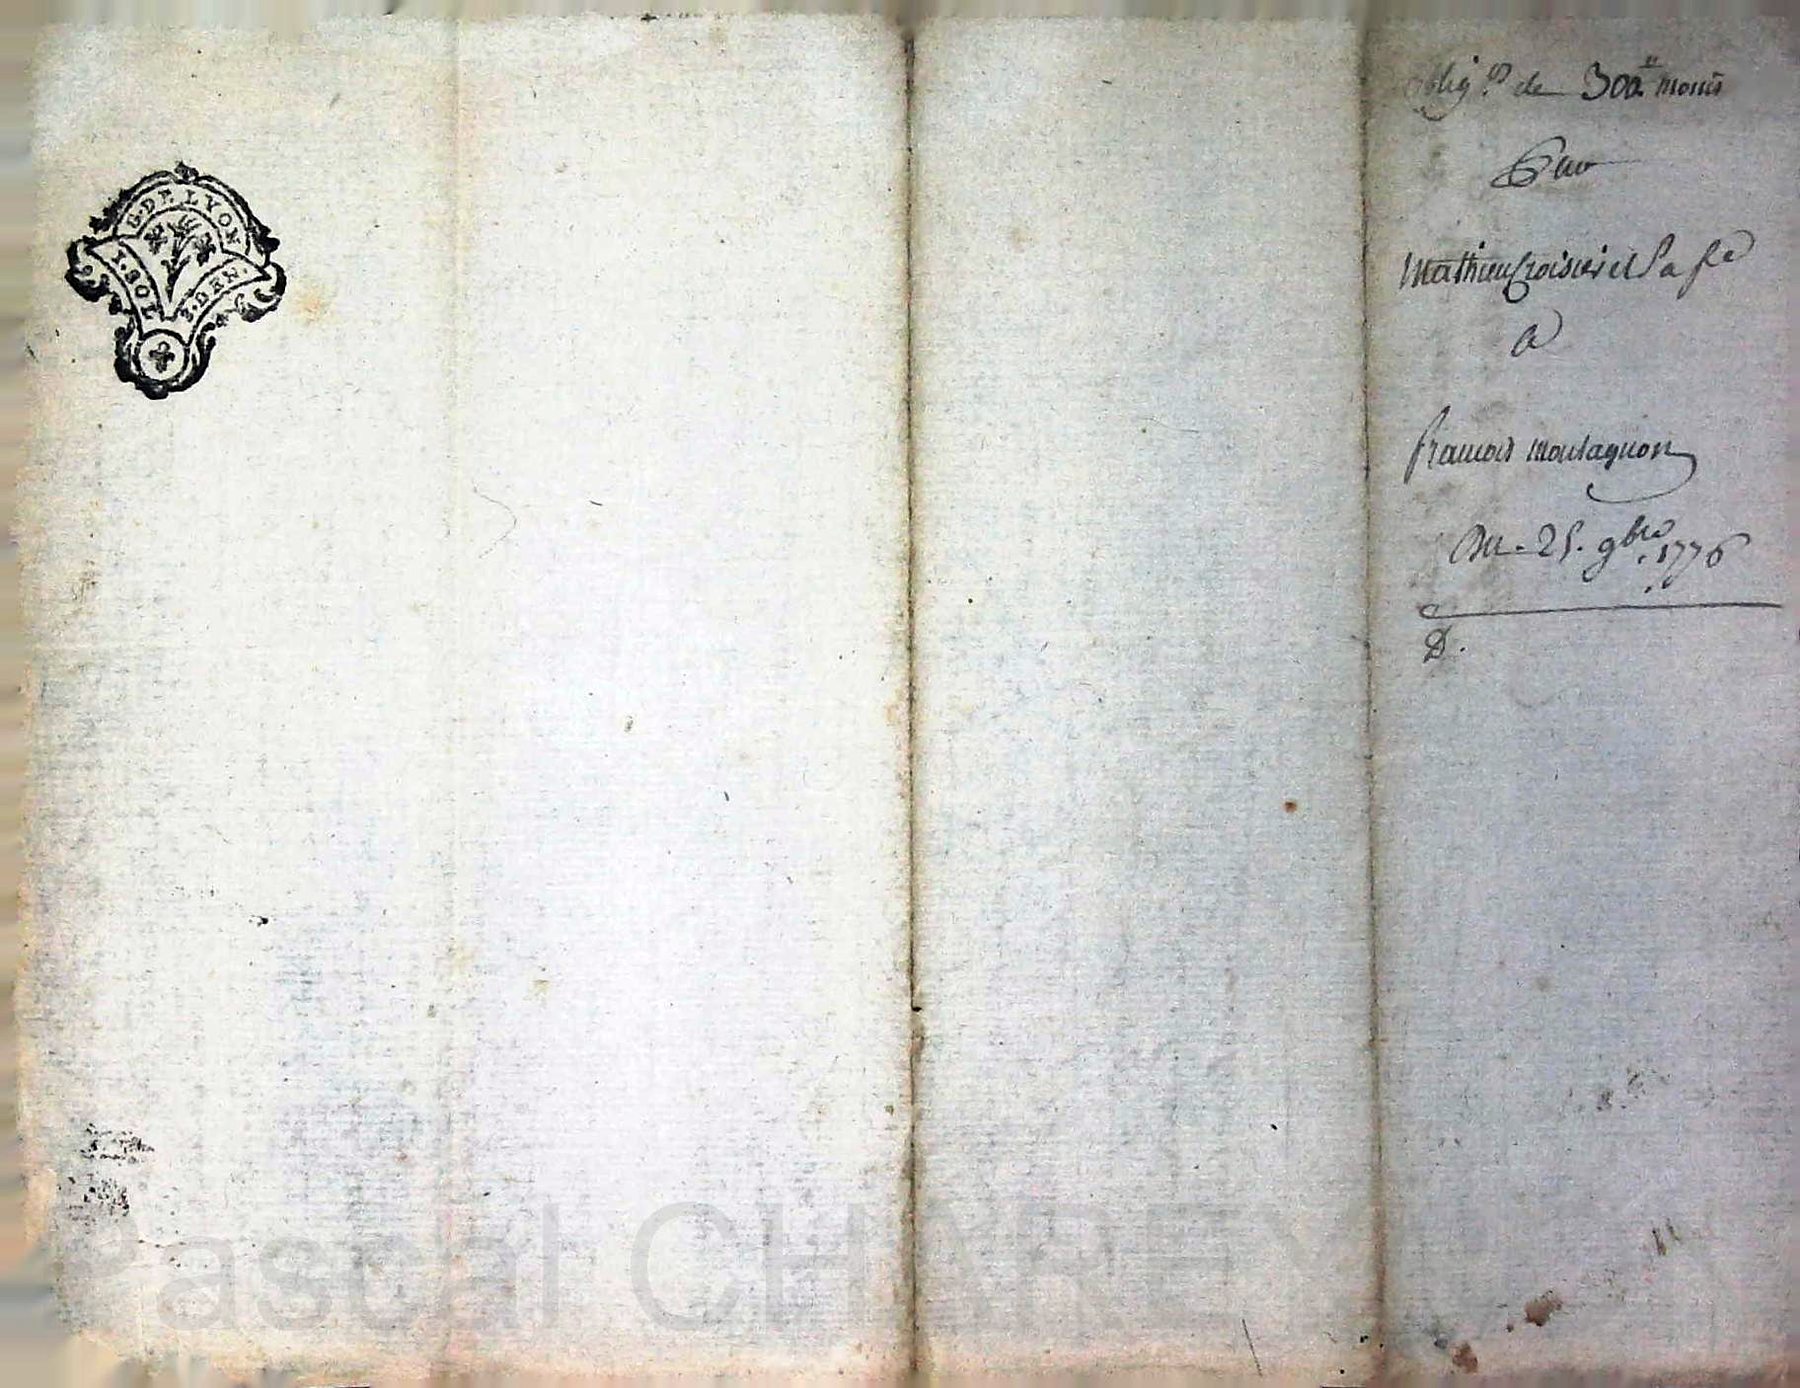 G. DE LYON
1. SOL
3. DEN.
oblig.on de 300 tt montt
Par
Mathieu Croisier et Sa fe
a
francois montagnon
Du. 25. 9bre. 1776
D.
Pascal CHAREY